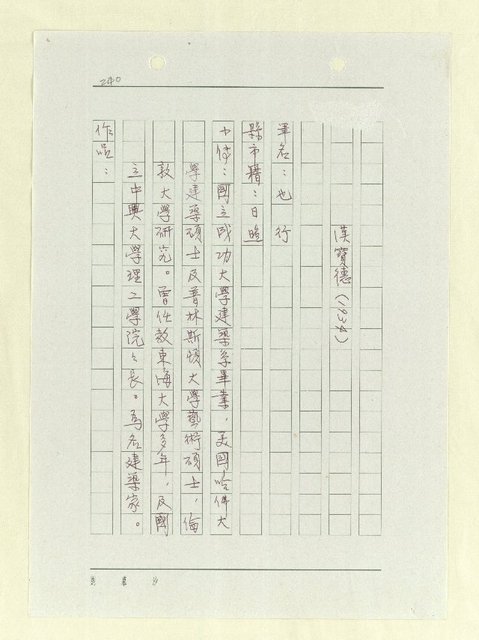 240
漢寶德(1934)
筆名：也行
縣市籍：日照
小傳：國立成功大學建築系畢業，美國哈佛大
學建築碩士及普林斯頓大學藝術碩士，倫
敦大學研究。曾任教東海大學多年，及國
立中興大學理工學院院長。為名建築家。
作品：